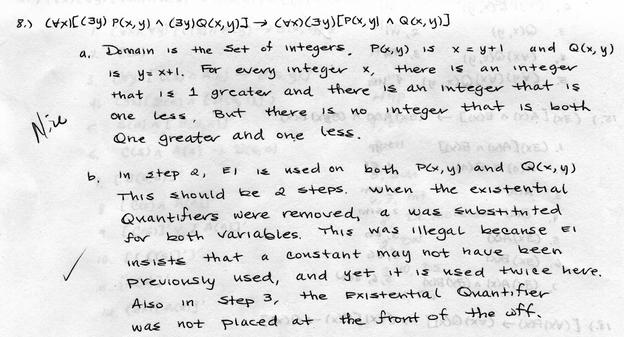 8.) (∀x)[(∃y) P(x,y) ∧ (∃y)Q(x,y)] → (∀x)(∃y)[P(x,y) ∧ Q(x,y)]
a. Domain is the set of integers, P(x,y) is x = y+1 and Q(x,y)
is y = x+1. For every integer x, there is an integer
that is 1 greater and there is an integer that is
one less. But there is no integer that is both
One greater and one less.
Nice
b. in step 2, EI is used on both P(x,y) and Q(x,y)
This should be 2 steps. when the existential
Quantifiers were removed, a was substituted
for both variables. This was illegal because EI
insists that a constant may not have been
previously used, and yet it is used twice here.
Also in step 3, the Existential Quantifier
was not placed at the front of the wff.